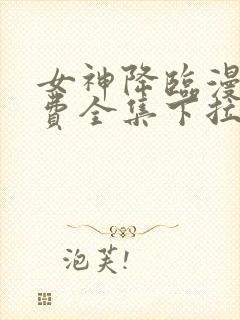 女神降临漫
费全集下拉
泡芙!